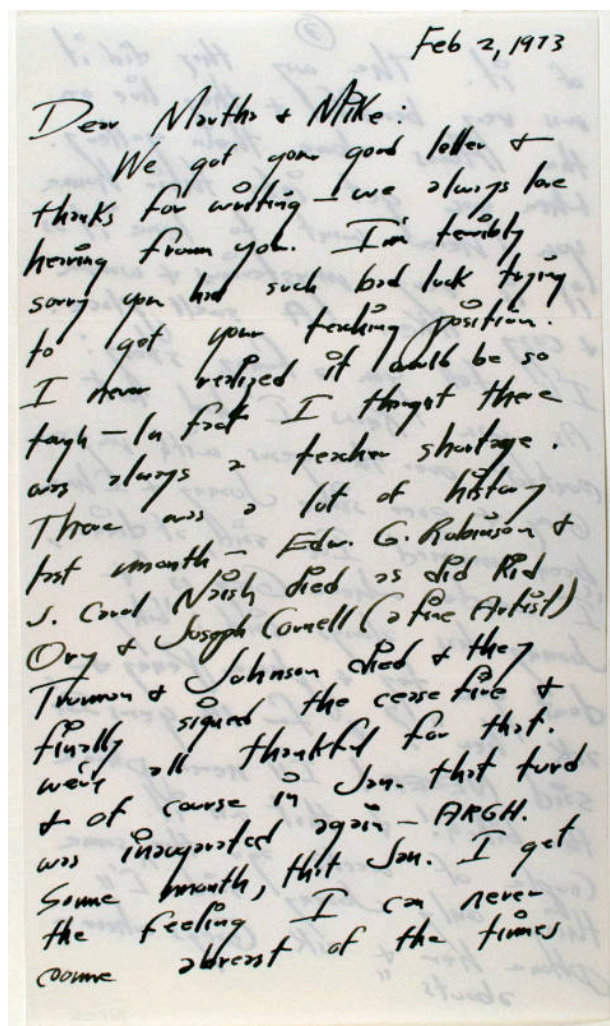 Feb 2, 1973
Dear Martha & Mike:
We got your good letter &
thanks for writing — we always love
hearing from you. I'm terribly
sorry you had such bad luck trying
to get your teaching position.
I never realized it would be so
tough — In fact I thought there
was always a teacher shortage.
There was a lot of history
last month — Edw. G. Robinson &
J. Carol Naish died as did Kid
Ory & Joseph Cornell (a fine Artist)
Truman & Johnson died & they
finally signed the cease fire &
we're all thankful for that.
& of course in Jan. that turd
was inaugurated again — ARGH.
Some month, that Jan. I get
the feeling I can never
come abreast of the times